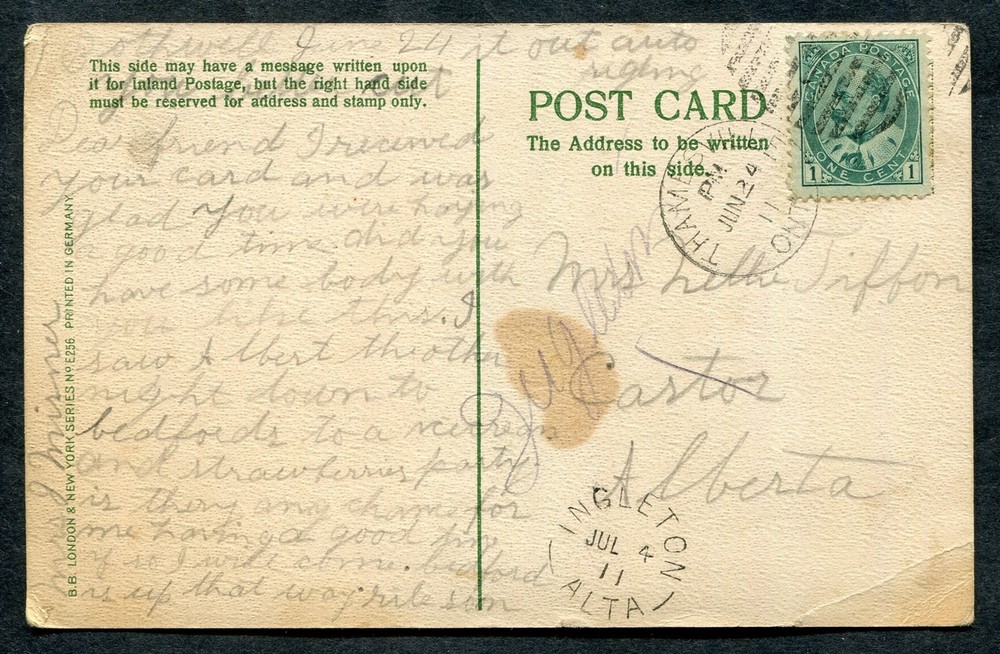 Bothwell Jun 24 it out auto
riding
This side may have a message written upon
it for Inland Postage, but the right hand side
must be reserved for address and stamp only.
Dear friend I received
your card and was
glad you were having
a good time did you
have some body with
you like this. I
saw Albert the other
night down to
bedfords to a icecream
and strawberries party
is there any chance for
me having a good time
if so I will come. bedford
is up that way rite son
Misner
B.B. LONDON & NEW YORK SERIES No E256 PRINTED IN GERMANY
POST CARD
The Address to be written
on this side.
CANADA POSTAGE
ONE CENT
1 1
THAMESVILLE
PM
JUN 24
11
ONT
Mrs Lillie Tiffon
Castor
Alberta
INGLETON
JUL 4
11
ALTA